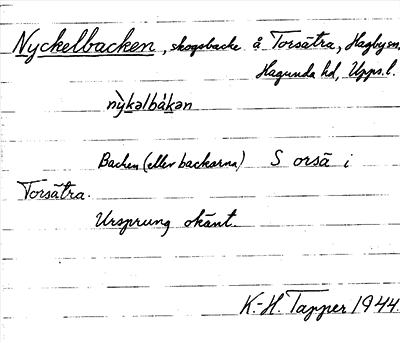 Nyckelbacken, skogsbacke å Torsätra, Hagbysn,
Hagunda hd, Upps.l.
nỳkəlbákən
Backen (eller backarna) S orsä i
Torsätra.
Ursprung okänt.
K.-H. Tapper 1944.